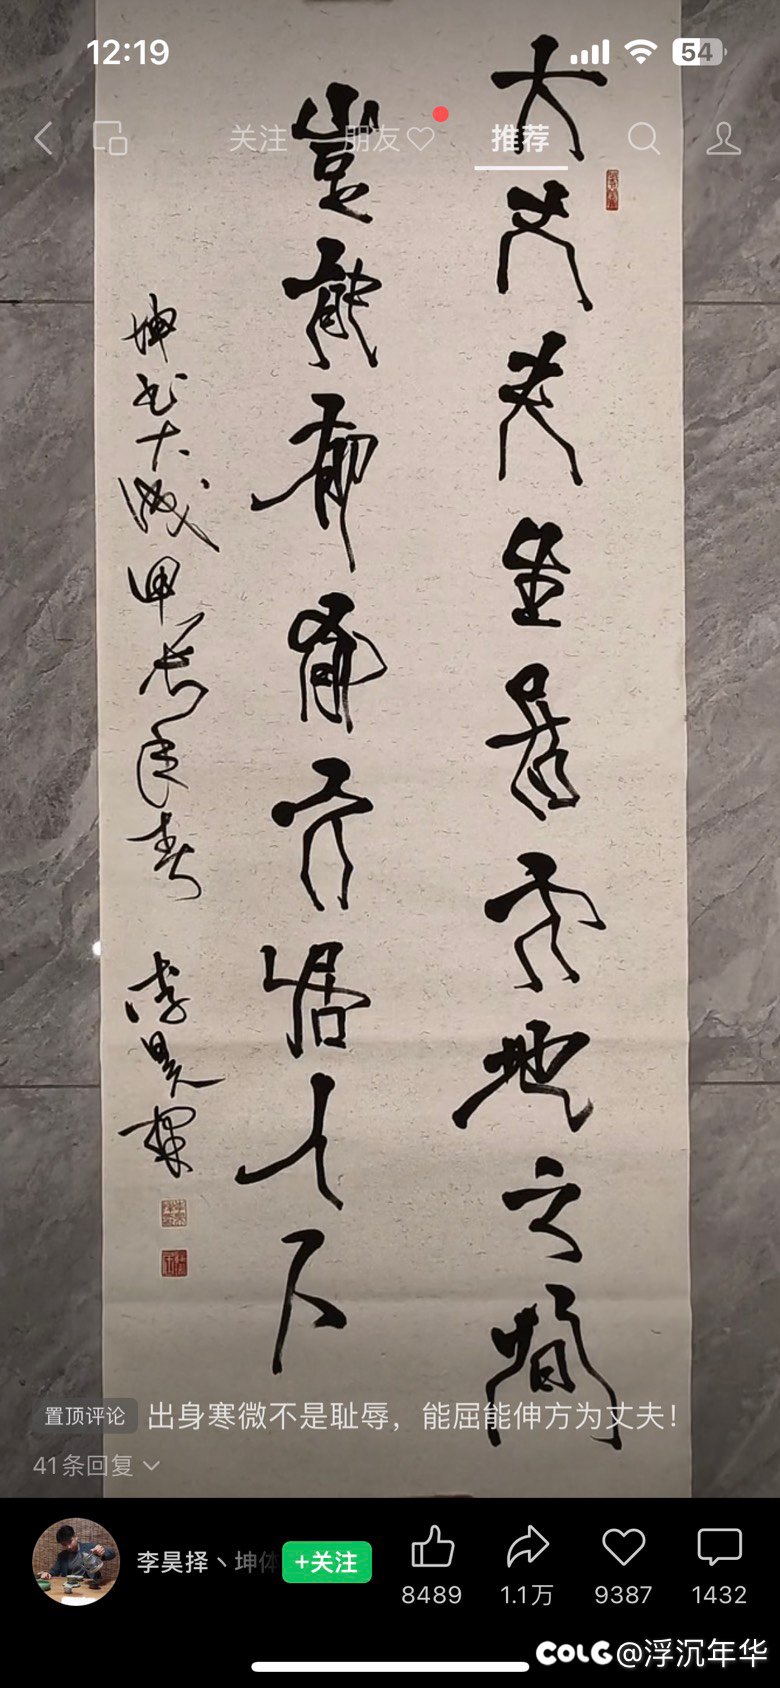 12:19
54
关注
朋友
推荐
大丈夫生居天地之间
岂能郁郁久居人下
坤书大成 甲辰年春 李昊择
置顶评论 出身寒微不是耻辱，能屈能伸方为丈夫！
41条回复
李昊择丶坤体
+关注
8489
1.1万
9387
1432
COLG @浮沉年华